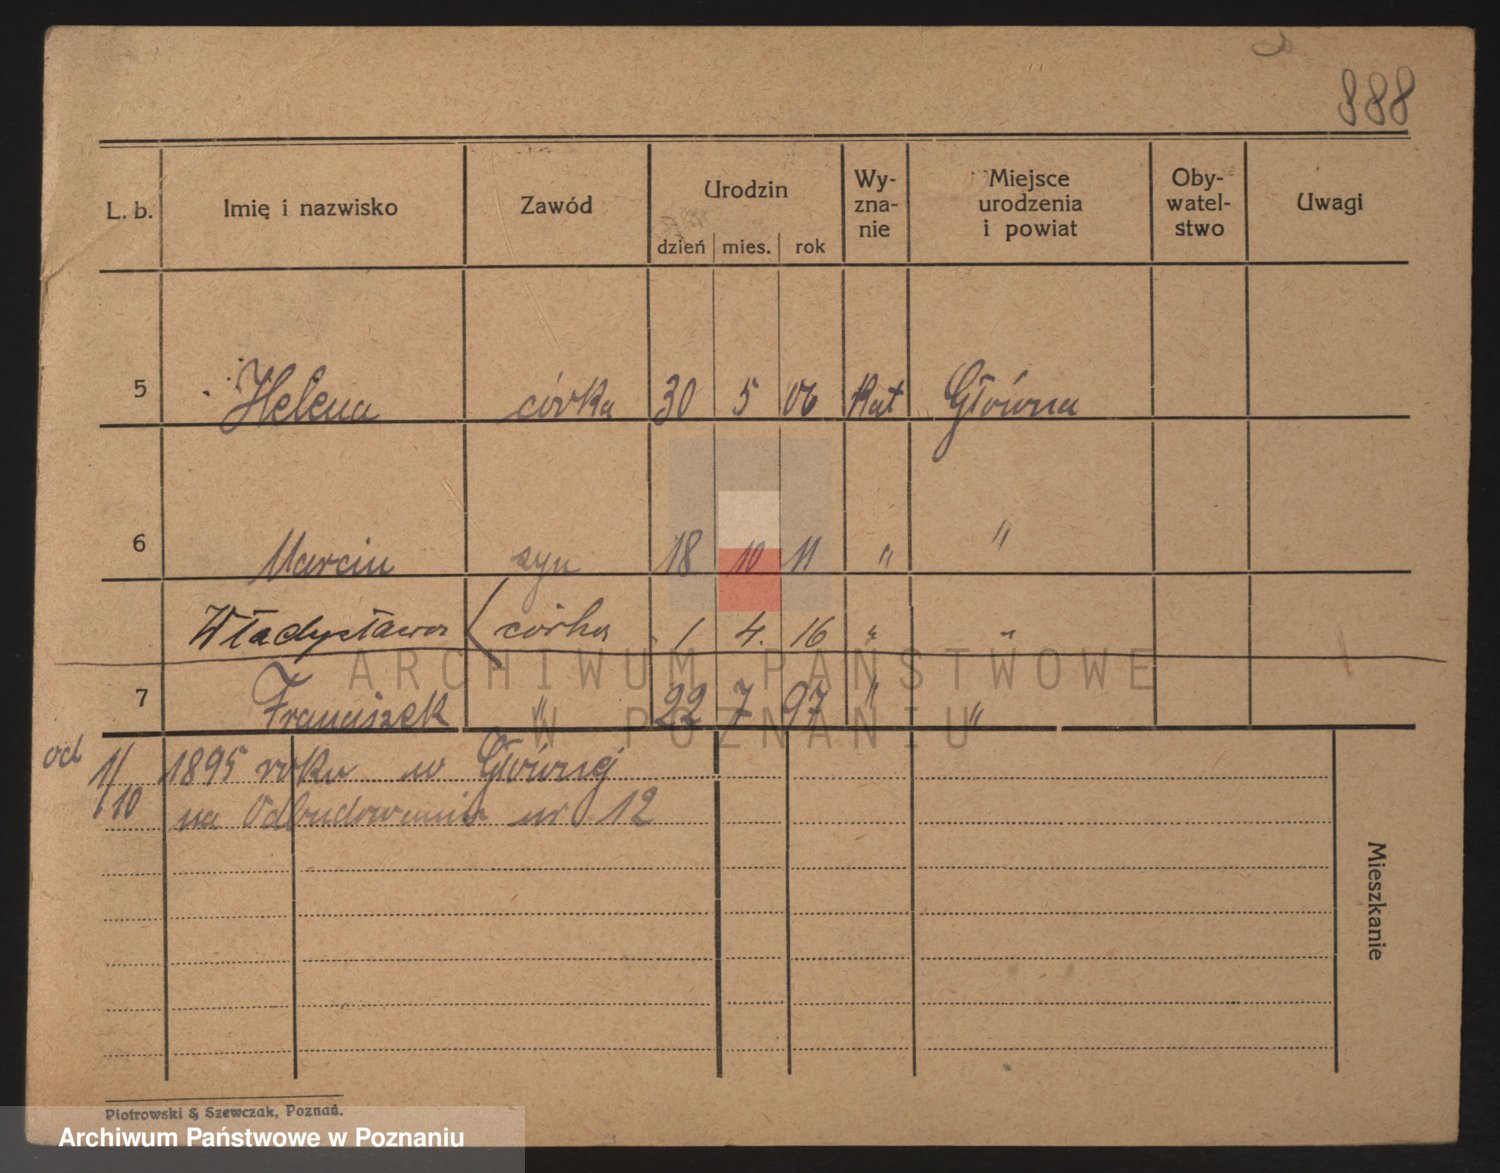 888
L. b. Imię i nazwisko Zawód Urodzin dzień mies. rok Wy-zna-nie Miejsce urodzenia i powiat Oby-watel-stwo Uwagi
5 Helena córka 30 5 06 Kat Główna
6 Marcin syn 18 10 11 " "
Władysława córka 1 4. 16 " "
7 Franciszek " 22 7 97 " "
od 1/10 1895 roku w Głównej
na Odbudowaniu nr 12
Mieszkanie
Piotrowski & Szewczak, Poznań.
ARCHIWUM PAŃSTWOWE
W POZNANIU
Archiwum Państwowe w Poznaniu